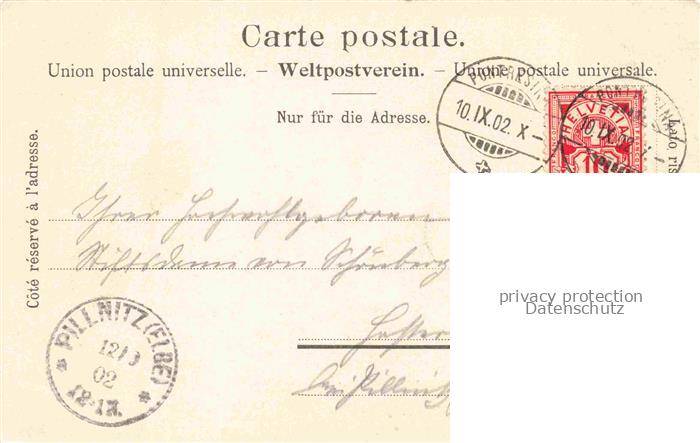 Carte postale.
Union postale universelle. – Weltpostverein. – Unione postale universale.
Nur für die Adresse.
Côté réservé à l'adresse.
lato ris
PONTRESINA
10.IX.02.X
HELVETIA
PONTRESINA
10.IX.02.
Ihrer Hochwohlgeboren
Stiftsdame von Schönberg
Hoster
bei Pillnitz
PILLNITZ (ELBE)
02
12-1N.
privacy protection
Datenschutz